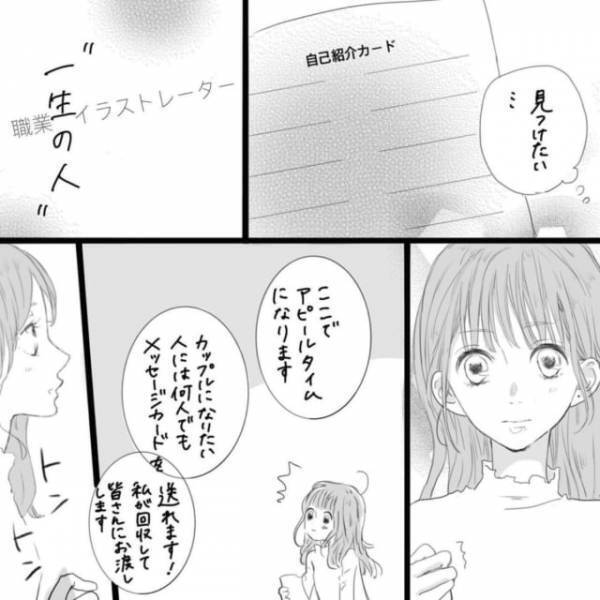 自己紹介カード
見つけたい
…
“一生の人”
職業 イラストレーター
ここで
アピールタイム
になります
カップルになりたい
人には何人でも
メッセージカードを
送れます！
私が回収して
皆さんにお渡し
します
トントン